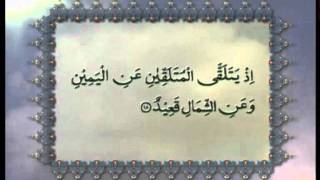 اِذْ يَتَلَقَّى الْمُتَلَقِّيٰنِ عَنِ الْيَمِيْنِ
وَعَنِ الشِّمَالِ قَعِيْدٌ ۝۱۸